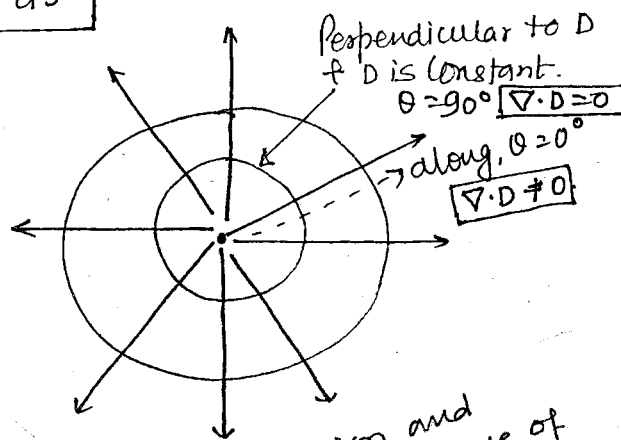 Perpendicular to D
& D is Constant.
θ = 90° ∇·D = 0
along, θ = 0°
∇·D ≠ 0
and
of